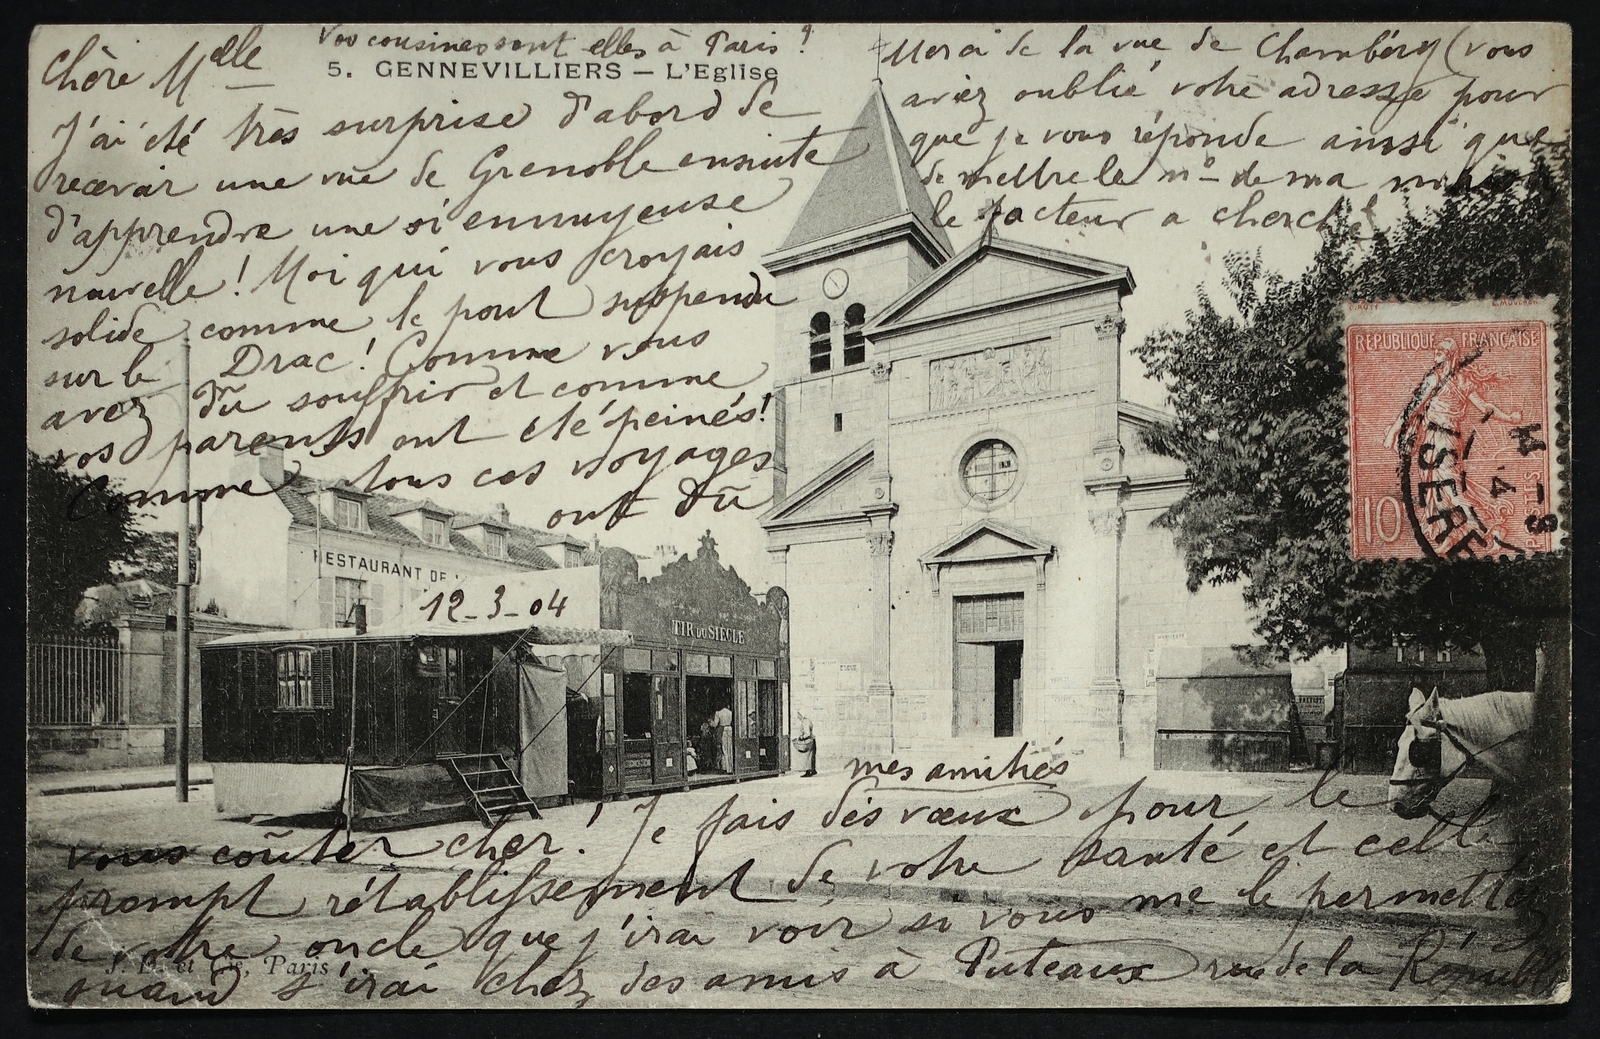 Vos cousines sont elles à Paris ?
5. GENNEVILLIERS – L'Eglise
Chère Melle
J'ai été très surprise d'abord de
recevoir une vue de Grenoble ensuite
d'apprendre une si ennuyeuse
nouvelle ! Moi qui vous croyais
solide comme le pont suspendu
sur le Drac ! Comme vous
avez dû souffrir et comme
vos parents ont été peinés !
Comme tous ces voyages
ont dû
12-3-04
vous coûter cher ! Je fais des vœux pour le
prompt rétablissement de votre santé et celle
de votre oncle que j'irai voir si vous me le permettez
quand j'irai chez des amis à Puteaux rue de la Républ
mes amitiés
Merci de la vue de Chambéry (vous
aviez oublié votre adresse pour
que je vous réponde ainsi que
de mettre le no de ma
le facteur a cherché
RESTAURANT DE
TIR DU SIÈCLE
TIR
J. D. et Cie, Paris
O. ROTY
E. MOUCHON
REPUBLIQUE FRANÇAISE
10
POSTES
ISERE